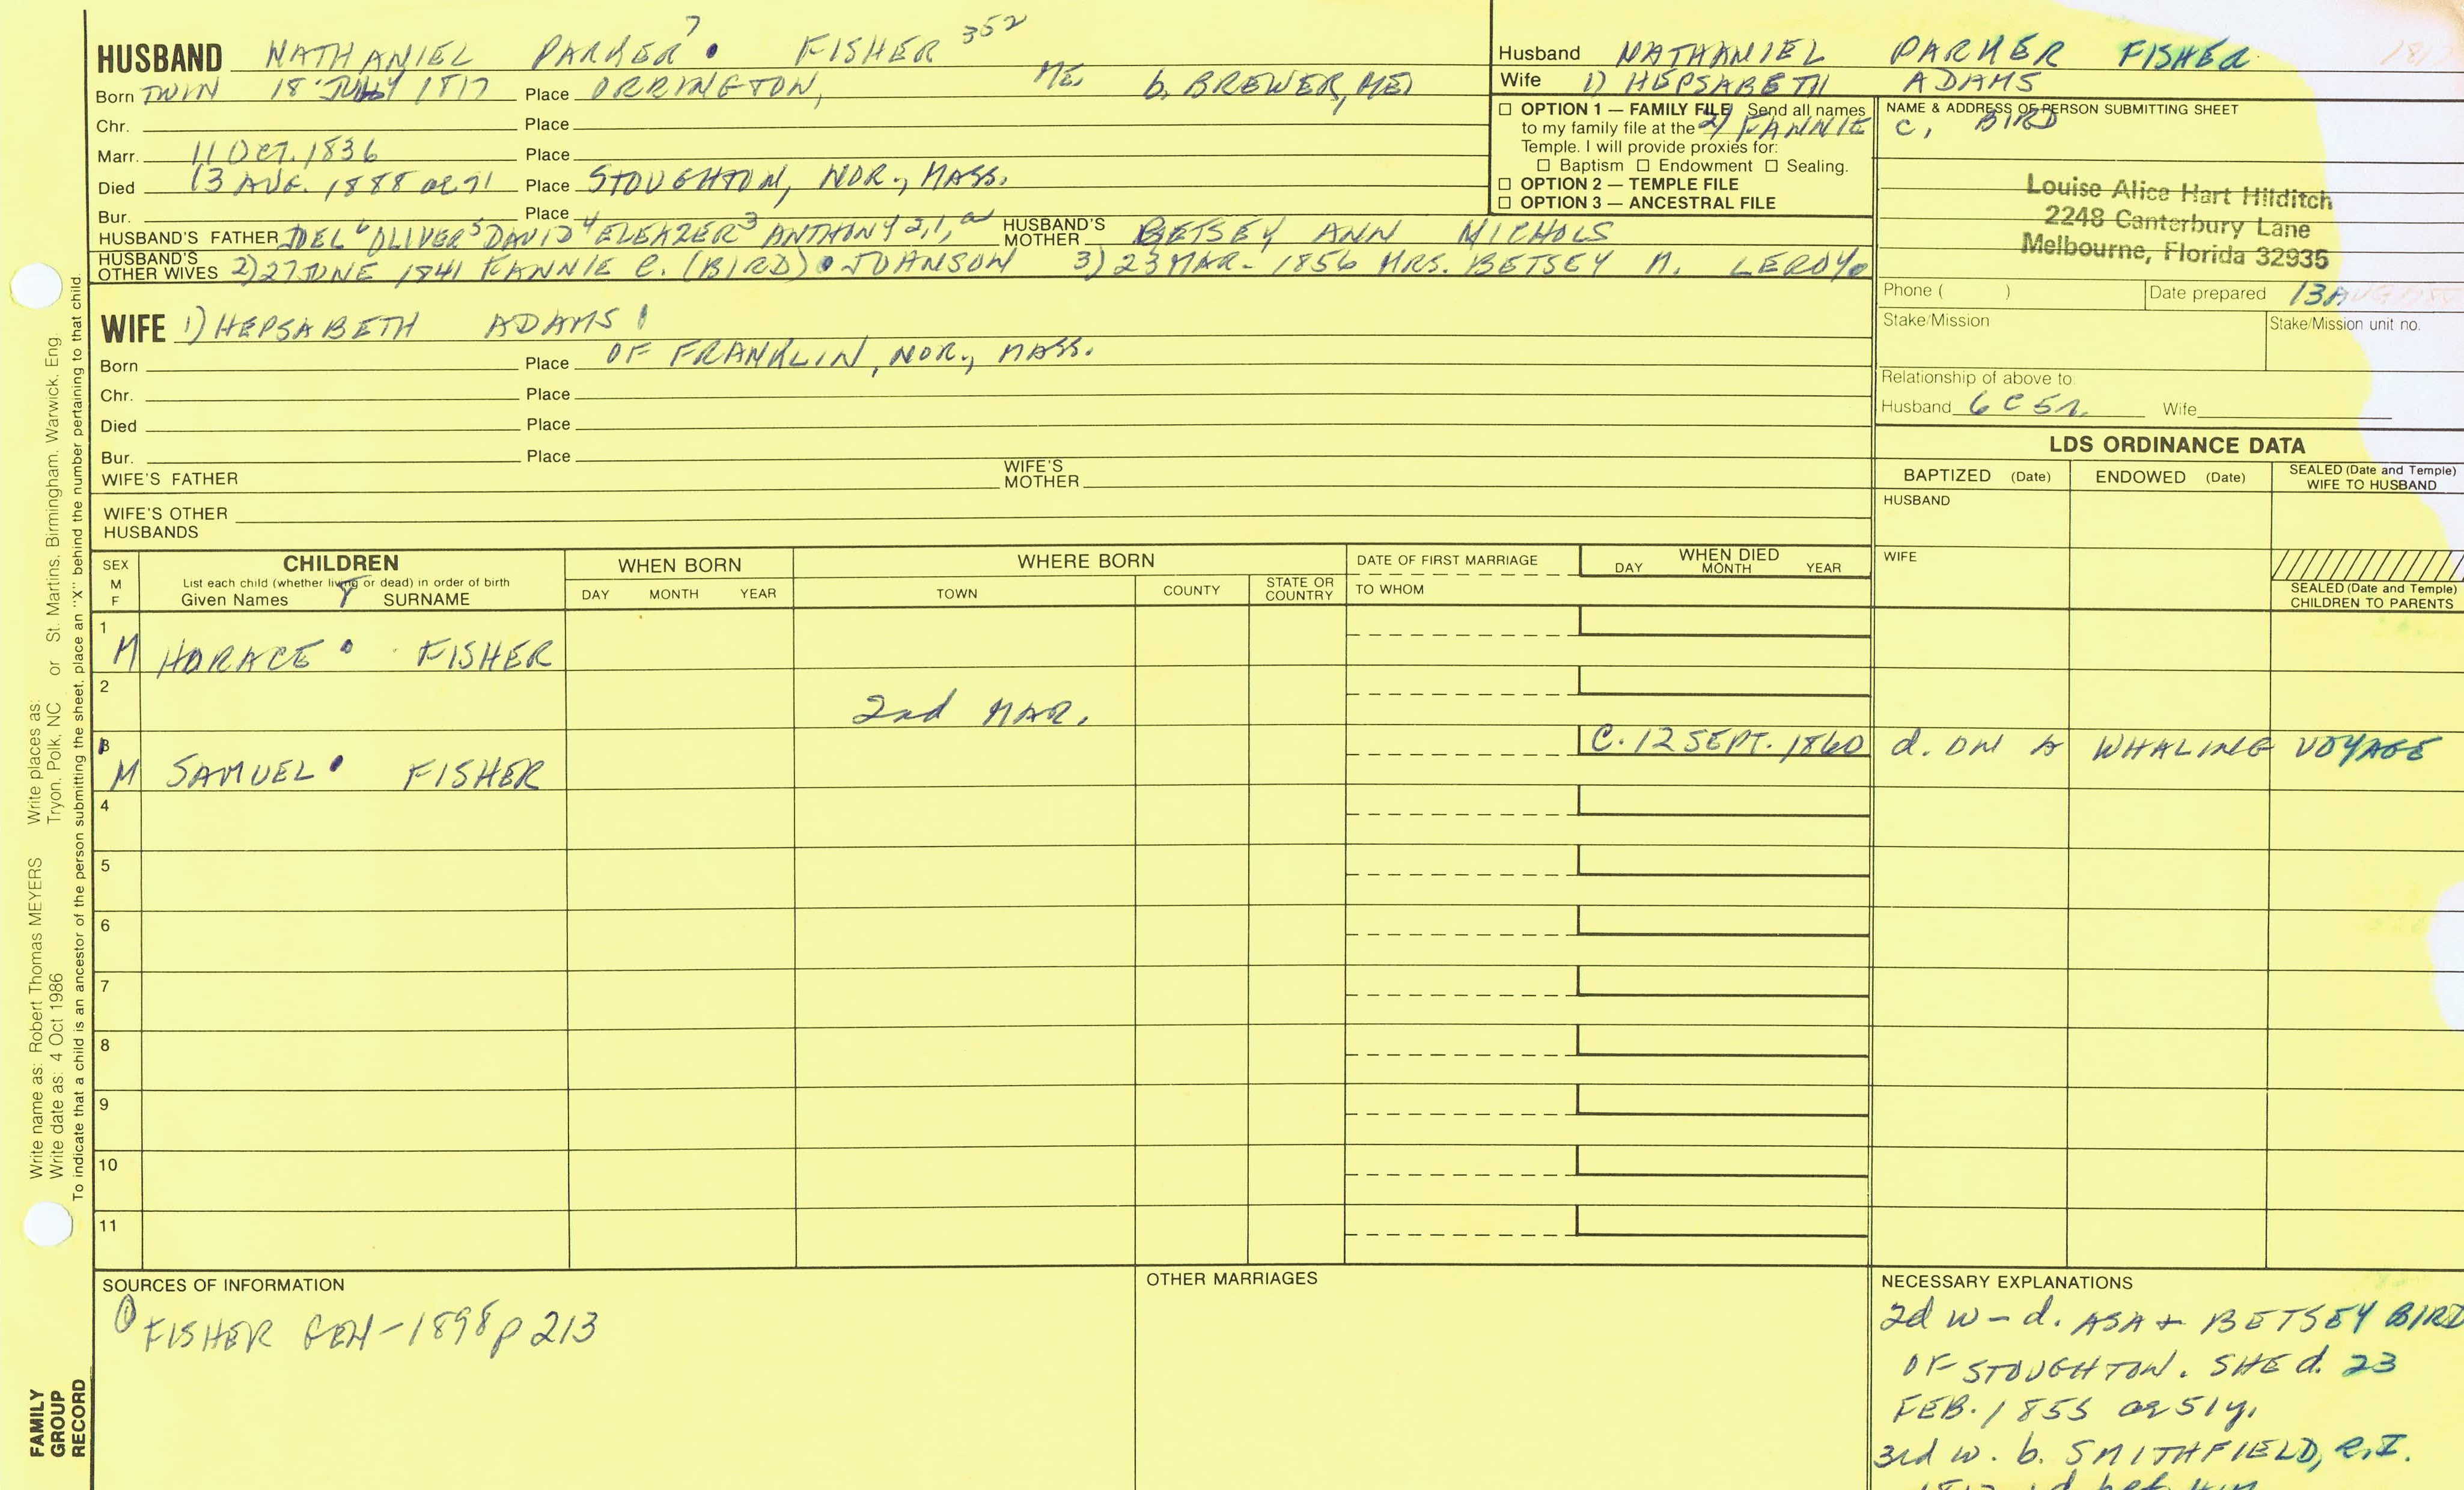 HUSBAND NATHANIEL PARKER 7 FISHER 352
Born TWIN 18 JULY 1817 Place ORRINGTON, ME. b. BREWER, ME)
Chr. Place
Marr. 11 OCT. 1836 Place
Died 13 AUG. 1888 ae 71 Place STOUGHTON, NOR., MASS.
Bur. Place
HUSBAND'S FATHER JOEL 6 OLIVER 5 DAVID 4 ELEAZER 3 ANTHONY 2,1, a HUSBAND'S MOTHER BETSEY ANN NICHOLS
HUSBAND'S OTHER WIVES 2) 27 JUNE 1841 FANNIE C. (BIRD) JOHNSON 3) 23 MAR. 1856 MRS. BETSEY N. LEROY
WIFE 1) HEPSABETH ADAMS
Born Place OF FRANKLIN, NOR., MASS.
Chr. Place
Died Place
Bur. Place
WIFE'S FATHER WIFE'S MOTHER
WIFE'S OTHER HUSBANDS
Husband NATHANIEL PARKER FISHER
Wife 1) HEPSABETH ADAMS
2) FANNIE C. BIRD
OPTION 1 — FAMILY FILE Send all names
to my family file at the
Temple. I will provide proxies for:
Baptism Endowment Sealing.
OPTION 2 — TEMPLE FILE
OPTION 3 — ANCESTRAL FILE
NAME & ADDRESS OF PERSON SUBMITTING SHEET
Louise Alice Hart Hilditch
2248 Canterbury Lane
Melbourne, Florida 32935
Phone ( ) Date prepared 13
Stake/Mission Stake/Mission unit no.
Relationship of above to
Husband 6 C 5 r. Wife
LDS ORDINANCE DATA
BAPTIZED (Date) ENDOWED (Date) SEALED (Date and Temple) WIFE TO HUSBAND
HUSBAND
WIFE
SEALED (Date and Temple) CHILDREN TO PARENTS
SEX M F
CHILDREN
List each child (whether living or dead) in order of birth
Given Names SURNAME
WHEN BORN
DAY MONTH YEAR
WHERE BORN
TOWN COUNTY STATE OR COUNTRY
DATE OF FIRST MARRIAGE
TO WHOM
WHEN DIED
DAY MONTH YEAR
1 M HORACE FISHER
2
2nd MAR.
3 M SAMUEL FISHER C. 12 SEPT. 1860 d. ON A WHALING VOYAGE
4
5
6
7
8
9
10
11
SOURCES OF INFORMATION
1 FISHER GEN-1898 p 213
OTHER MARRIAGES
NECESSARY EXPLANATIONS
2d w - d. ASA + BETSEY BIRD
OF STOUGHTON. SHE d. 23
FEB. 1855 ae 51 y.
3rd w. b. SMITHFIELD, R.I.
Write name as: Robert Thomas MEYERS Write places as:
Write date as: 4 Oct 1986 Tryon, Polk, NC or St. Martins, Birmingham, Warwick, Eng.
To indicate that a child is an ancestor of the person submitting the sheet, place an "X" behind the number pertaining to that child.
FAMILY
GROUP
RECORD